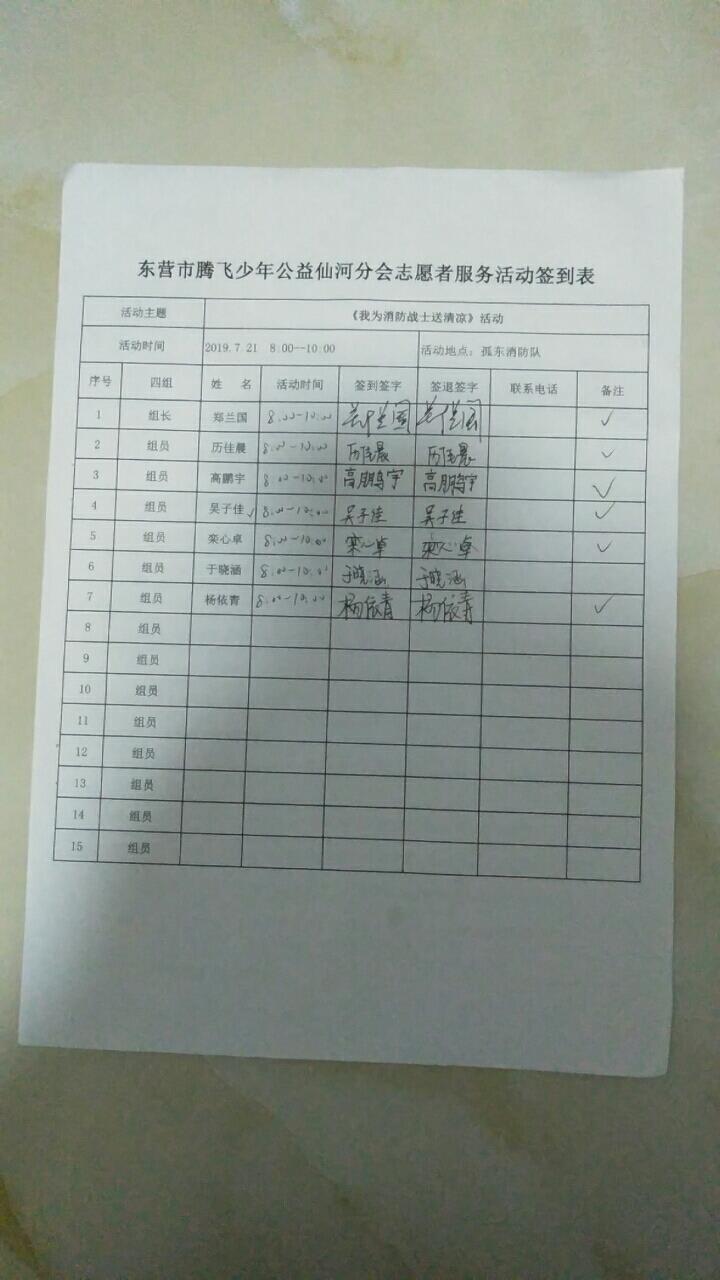 东营市腾飞少年公益仙河分会志愿者服务活动签到表
活动主题 《我为消防战士送清凉》活动
活动时间 2019.7.21 8:00--10:00 活动地点：孤东消防队
序号 四组 姓 名 活动时间 签到签字 签退签字 联系电话 备注
1 组长 郑兰国 8:00-10:00 ✓
2 组员 历佳晨 8:00-10:00 历佳晨 历佳晨 ✓
3 组员 高鹏宇 8:00-10:00 高鹏宇 高鹏宇 ✓
4 组员 吴子佳 ✓ 8:00-10:00 吴子佳 吴子佳 ✓
5 组员 栾心卓 8:00-10:00 栾心卓 栾心卓 ✓
6 组员 于晓涵 8:00-10:00 于晓涵 于晓涵
7 组员 杨依青 8:00-10:00 杨依青 杨依青 ✓
8 组员
9 组员
10 组员
11 组员
12 组员
13 组员
14 组员
15 组员